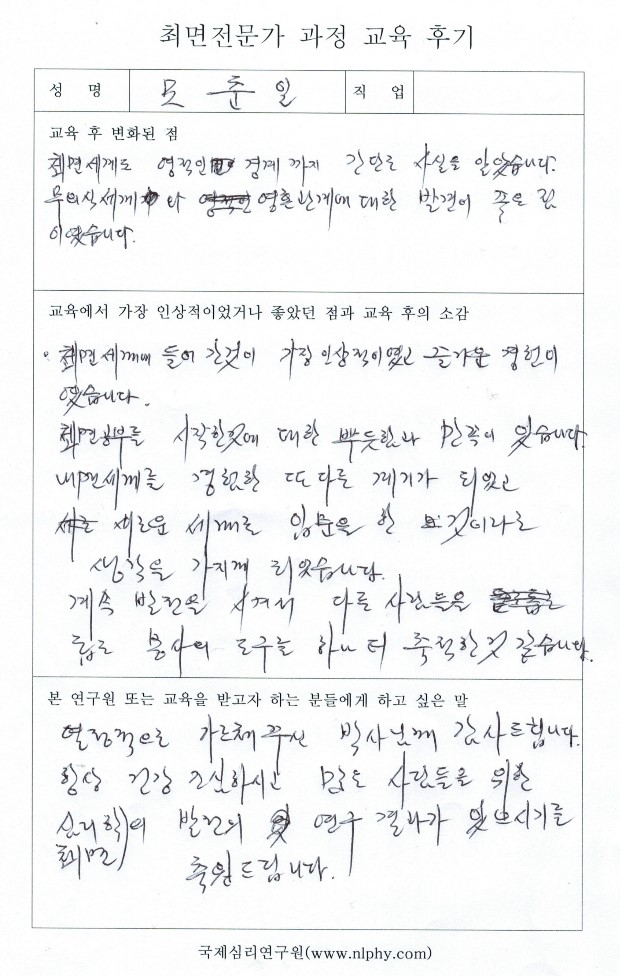 최면전문가 과정 교육 후기
성 명 모 춘 일 직 업
교육 후 변화된 점
최면세계도 영적인 경계 까지 간단로 사실을 알았습니다.
무의식세계와 영혼관계에 대한 발견이
이였습니다.
교육에서 가장 인상적이었거나 좋았던 점과 교육 후의 소감
최면세계에 들어 간것이 가장 인상적이였고 즐거운 경험이
였습니다.
최면공부를 시작한것에 대한 뿌듯함과 만족이 있습니다.
내면세계를 경험한 또다른 계기가 되었고
새로운 세계로 입문을 한 것이라고
생각을 가지게 되었습니다.
계속 발전을 시켜서 다른 사람들을
돕고 봉사의 도구를 하나 더 축적한것 같습니다.
본 연구원 또는 교육을 받고자 하는 분들에게 하고 싶은 말
열정적으로 가르쳐 주신 박사님께 감사드립니다.
항상 건강 조심하시고 많은 사람들을 위한
심리학의 발전의 연구 결과가 있으시기를
최면
축원드립니다.
국제심리연구원(www.nlphy.com)